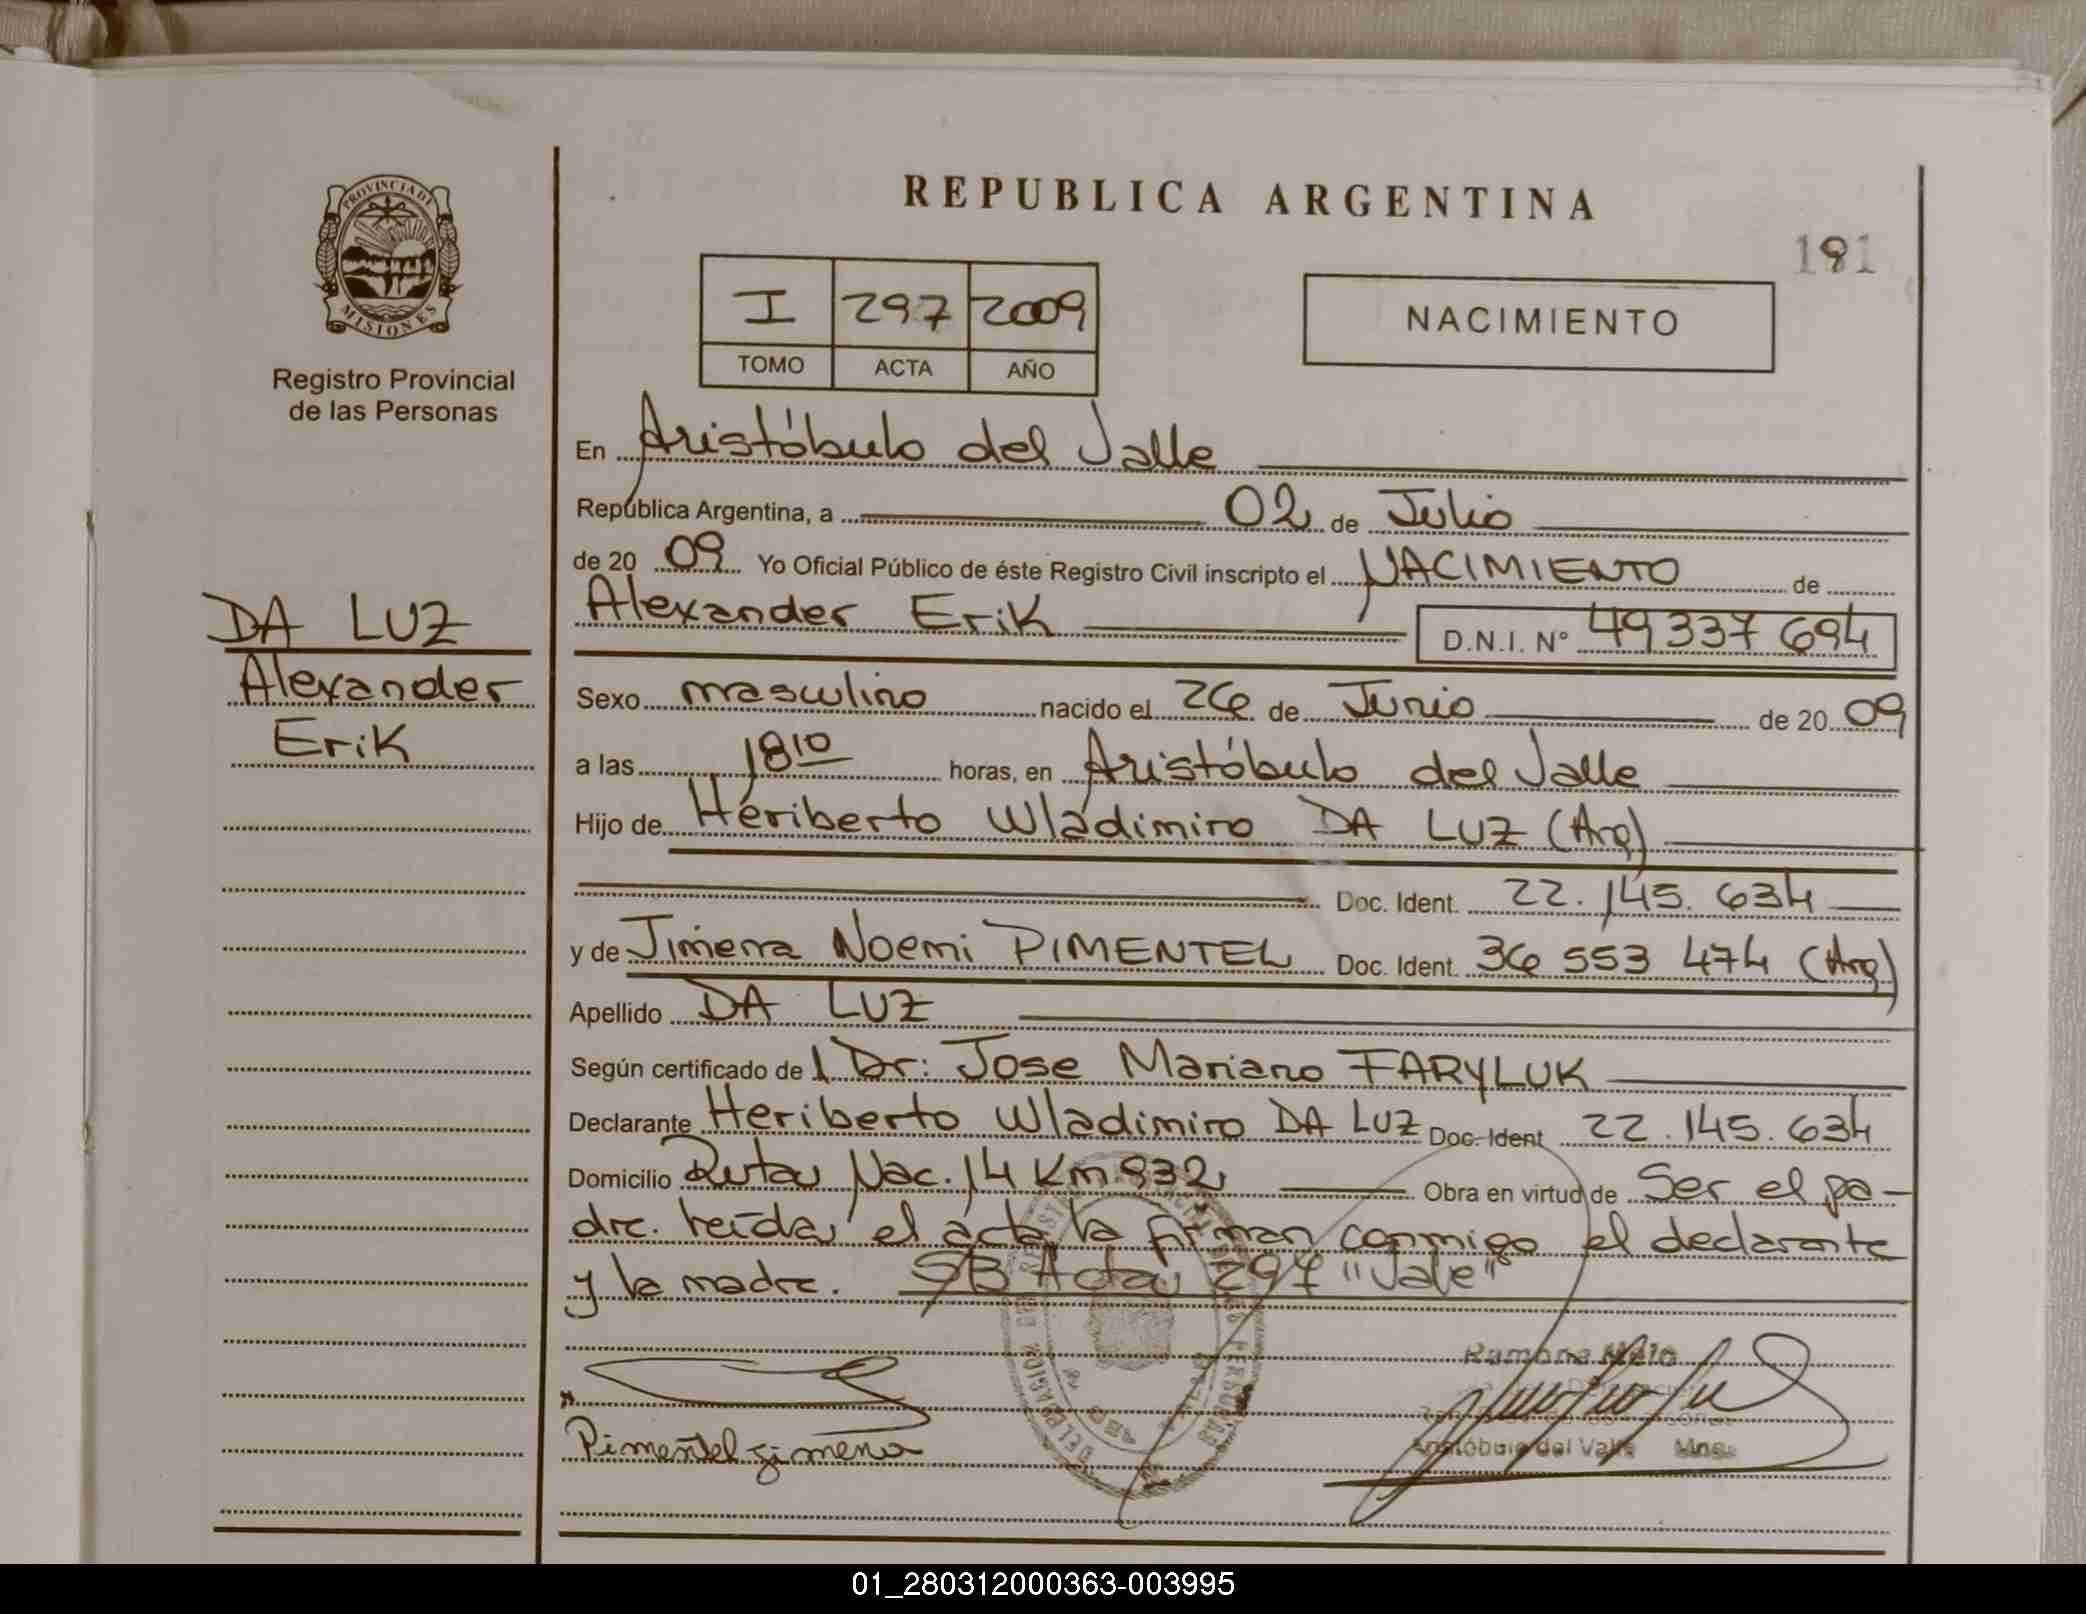 REPUBLICA ARGENTINA
191
PROVINCIA DE
MISIONES
Registro Provincial
de las Personas
I 297 2009
TOMO ACTA AÑO
NACIMIENTO
DA LUZ
Alexander
Erik
En Aristóbulo del Valle
República Argentina, a 02 de Julio
de 20 09 Yo Oficial Público de éste Registro Civil inscripto el NACIMIENTO de
Alexander Erik D.N.I. Nº 49337694
Sexo masculino nacido el 26 de Junio de 20 09
a las 18 10 horas, en Aristóbulo del Valle
Hijo de Heriberto Wladimiro DA LUZ (Arg)
Doc. Ident. 22.145.634
y de Jimena Noemi PIMENTEL Doc. Ident. 36 553 474 (Arg)
Apellido DA LUZ
Según certificado de l Dr: Jose Mariano FARYLUK
Declarante Heriberto Wladimiro DA LUZ Doc. Ident 22.145.634
Domicilio Ruta Nac. 14 Km 932 Obra en virtud de Ser el pa-
dre. leída el acta la firman conmigo el declarante
y la madre. S/B Acta 297 "Vale"
Pimentel Jimena
Ramona Melo
Aristóbulo del Valle Mnes
01_280312000363-003995